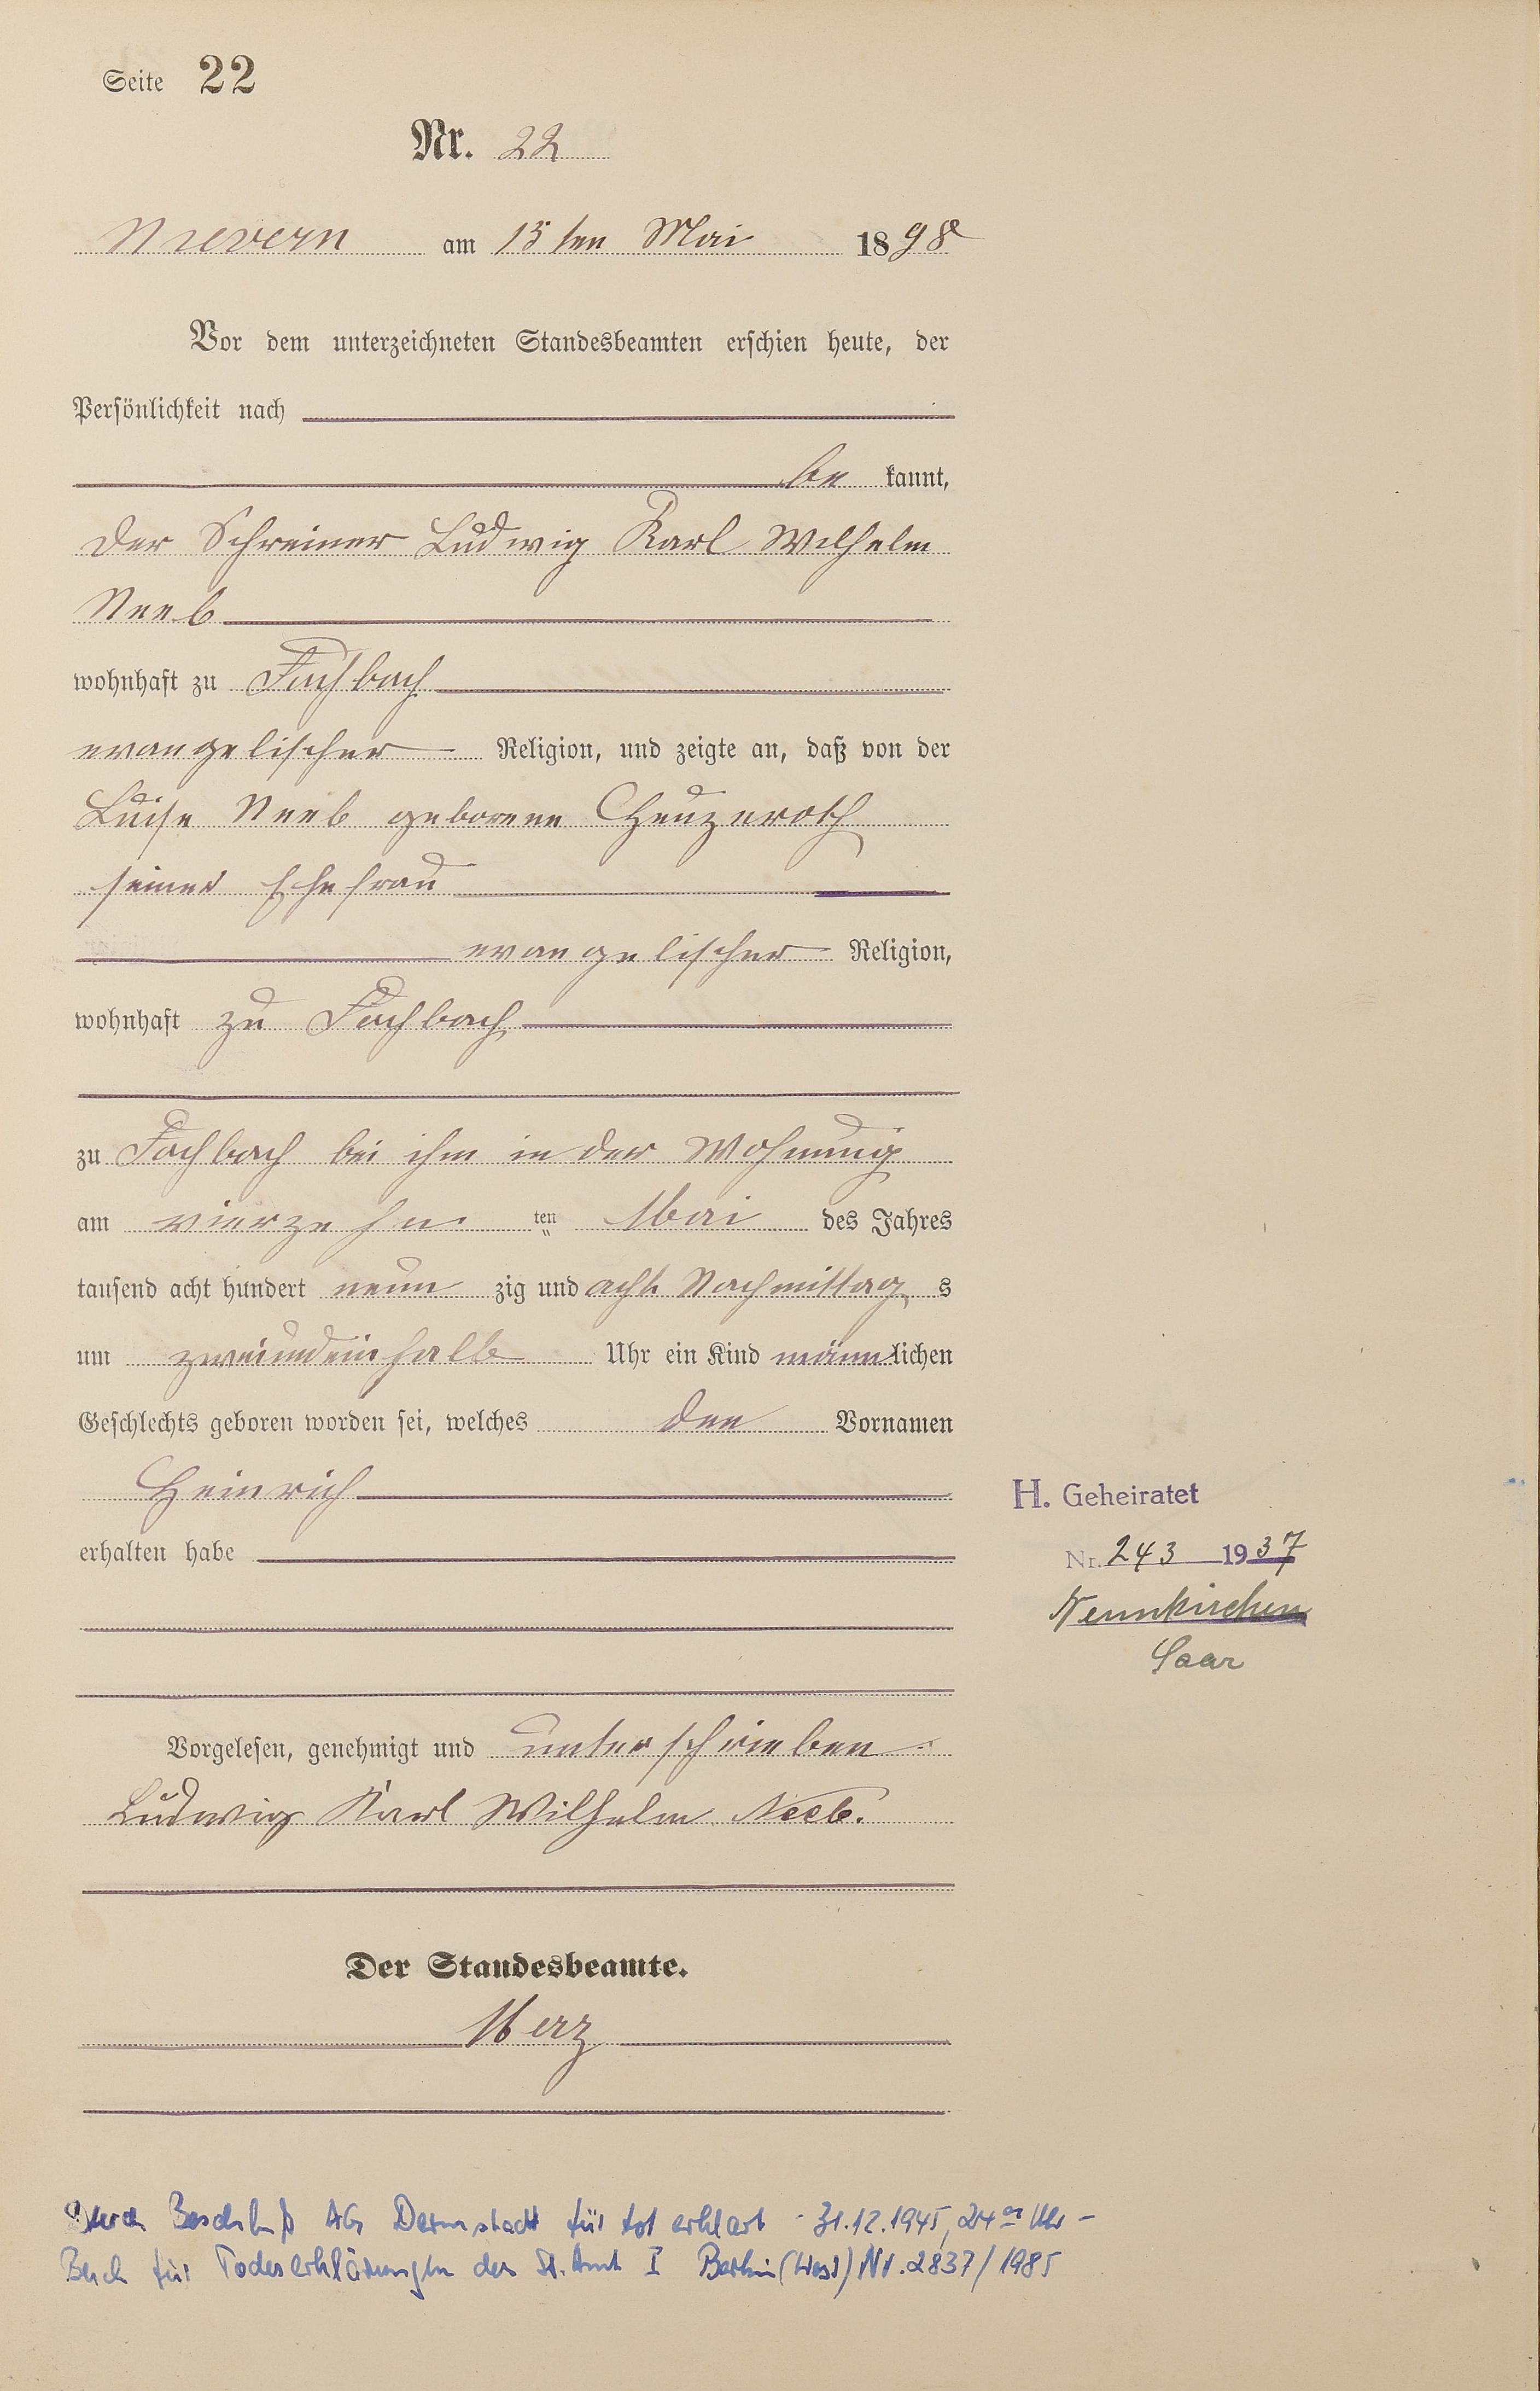 Seite 22
Nr. 22
Nievern am 15ten Mai 1898
Vor dem unterzeichneten Standesbeamten erschien heute, der
Persönlichkeit nach
be kannt,
der Schreiner Ludwig Karl Wilhelm
Neeb
wohnhaft zu Fachbach
evangelischer Religion, und zeigte an, daß von der
Luise Neeb geborene Heuzeroth
seiner Ehefrau
evangelischer Religion,
wohnhaft zu Fachbach
zu Fachbach bei ihm in der Wohnung
am vierzehn ten Mai des Jahres
tausend acht hundert neun zig und acht Nachmittag s
um zweiundeinhalb Uhr ein Kind männlichen
Geschlechts geboren worden sei, welches den Vornamen
Heinrich
H. Geheiratet
erhalten habe
Nr. 243 1937
Neunkirchen
Saar
Vorgelesen, genehmigt und unterschrieben.
Ludwig Karl Wilhelm Neeb.
Der Standesbeamte.
Merz
Durch Beschluß AG Darmstadt für tot erklärt - 31.12.1945, 24 00 Uhr -
Buch für Todeserklärungen des St. Amt I Berlin (West) Nr. 2837/1985